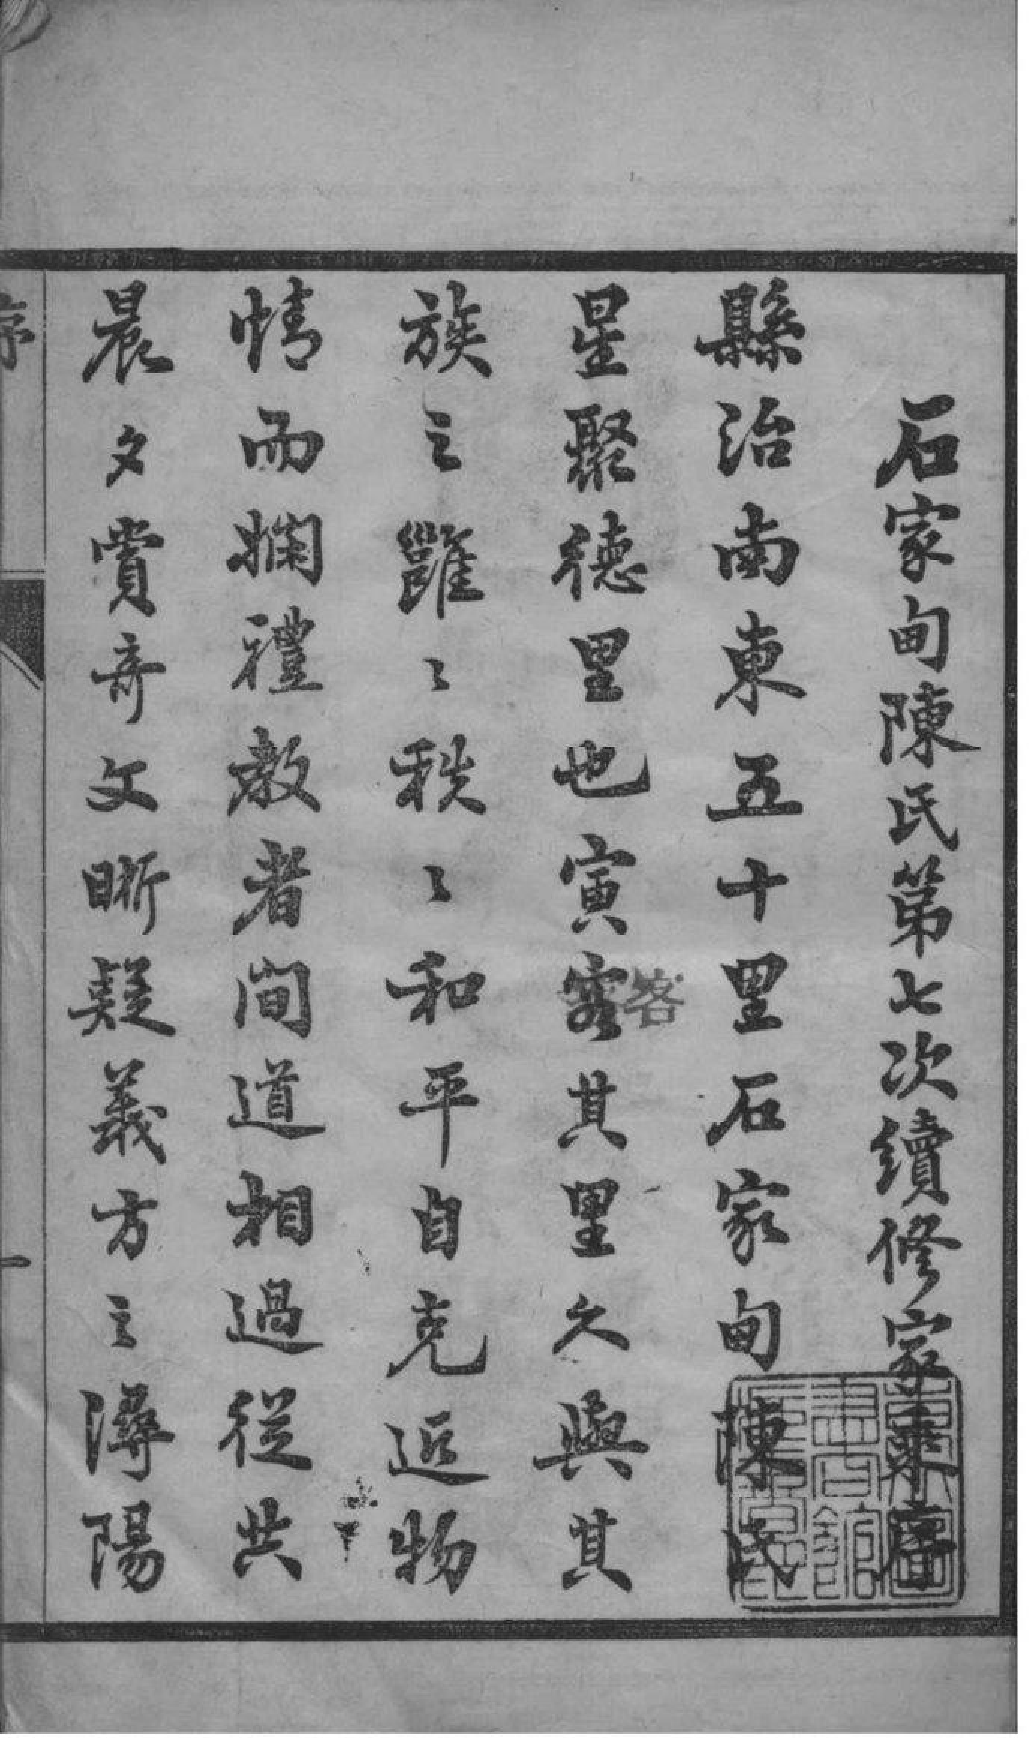 石家甸陳氏第七次續修家乗序
縣治南東五十里石家甸陳氏
星聚德里也寅客其里久與其
客
族之雝〻秩〻和平自克近物
情而嫻禮教者間道相過從共
晨夕賞奇文晰疑義方之潯陽
序
一